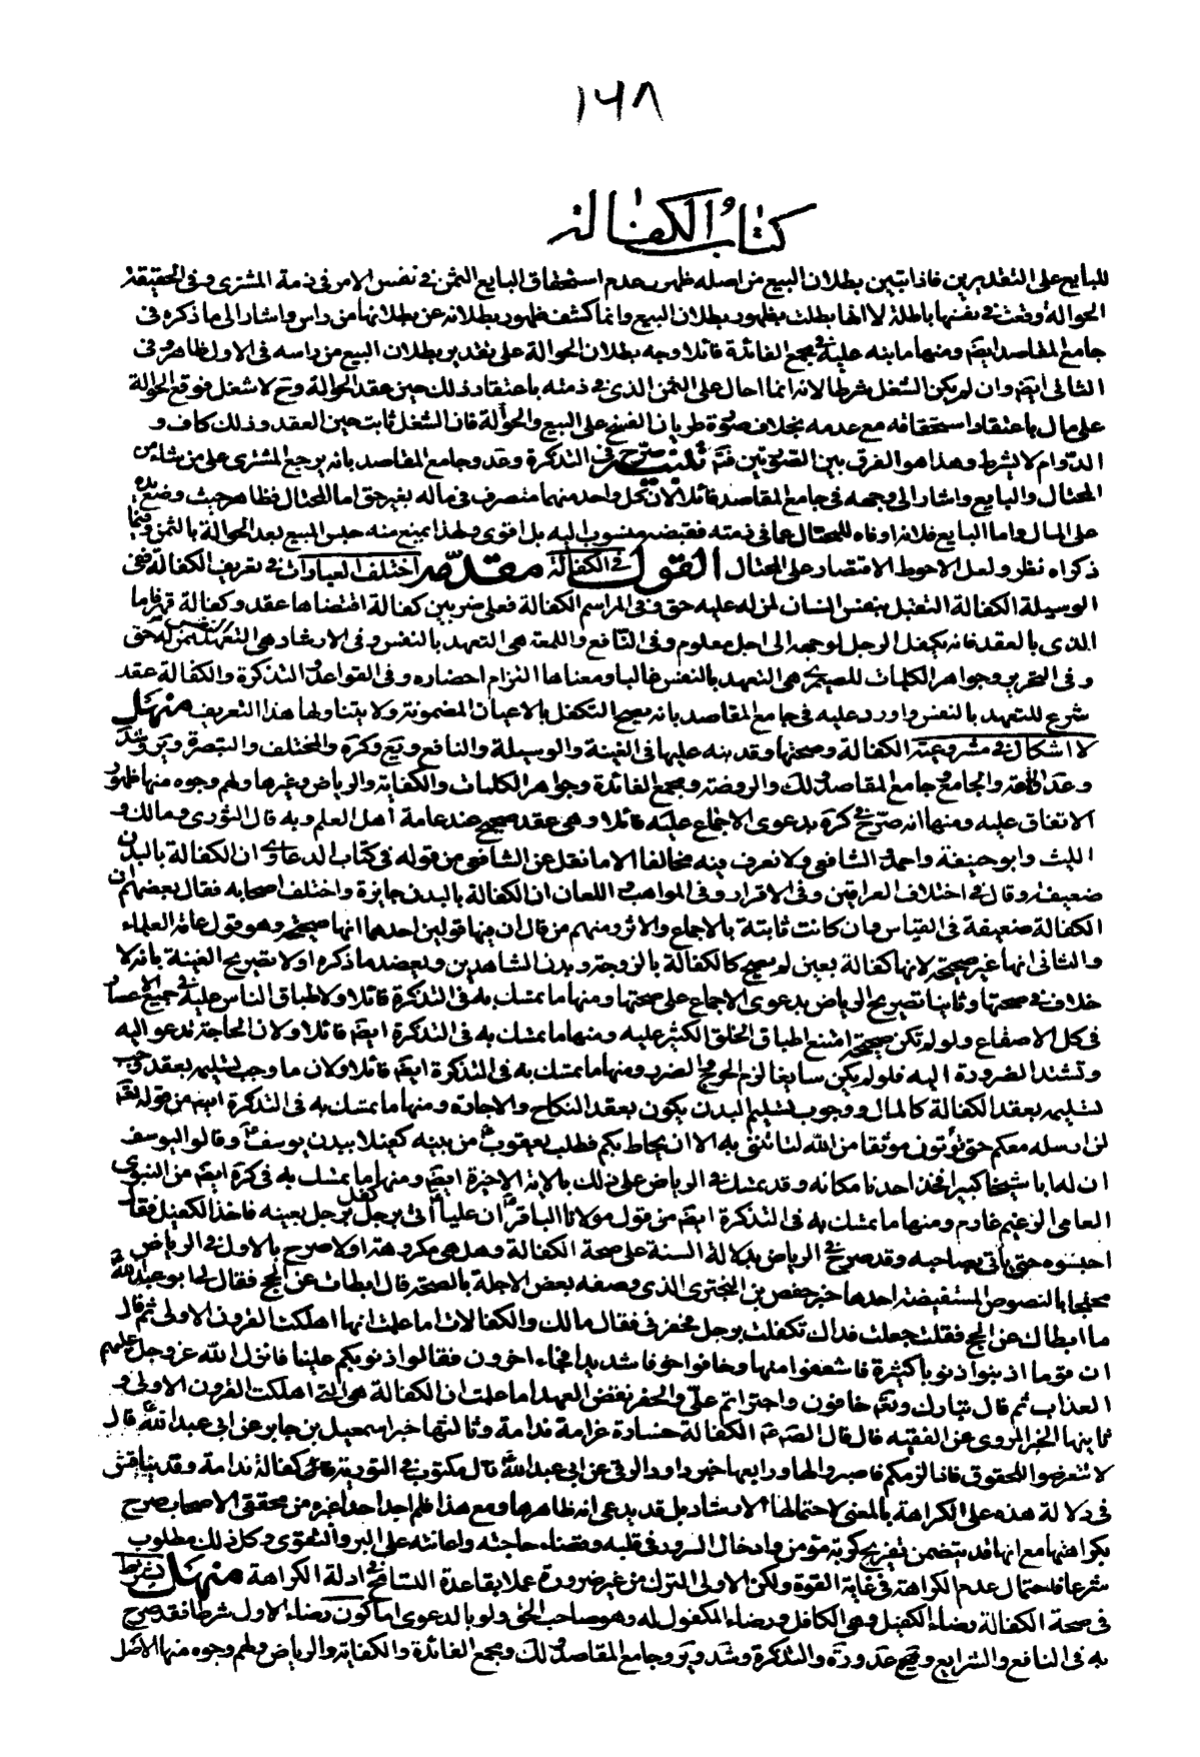 ١٤٨
كتاب الكفالة
للبايع على التقديرين فاذا تبين بطلان البيع من اصله ظهر عدم استحقاق البايع الثمن فى نفس الامر فى ذمة المشترى وفى الحقيقة
الحوالة وقعت فى نفسها باطلة لا انها بطلت بظهور بطلان البيع وانما كشف ظهور بطلانه عن بطلانها من راس واشار الى ما ذكره فى
جامع المقاصد ايضا ومنها ما نبه عليه فى مجمع الفائدة قائلا وجه بطلان الحوالة على تقدير بطلان البيع من راسه فى الاول ظاهر وفى
الثانى ايضا وان لم يكن الشغل شرطا لانه انما احال على الثمن الذى فى ذمته باعتقاد ذلك حين عقد الحوالة وح لا شغل فوقع الحوالة
على مال باعتقاد استحقاقه مع عدمه بخلاف صورة طريان الفسخ على البيع والحوالة فان الشغل ثابت حين العقد وذلك كاف و
الدوام لا يشرط وهذا هو الفرق بين الصورتين فتم ثلث صرح فى التذكرة وعد وجامع المقاصد بانه يرجع المشترى على من شاء من
المحتال والبايع واشار الى وجهه فى جامع المقاصد قائلا لان كل واحد منهما متصرف فى ماله بغير حق اما المحتال فظاهر حيث وضع يده
على المال واما البايع فلانه اوفاه للمحتال عما فى ذمته فقبضه منسوب اليه بل اقوى ولهذا يمنع منه حبس المبيع بعد الحوالة بالثمن وفيما
ذكراه نظر ولعل الاحوط الاقتصار على المحتال القول فى الكفالة مقدمة اختلف العبارات فى تعريف الكفالة ففى
الوسيلة الكفالة التقبل بنفس انسان لمن له عليه حق وفى المراسم الكفالة فعلى ضربين كفالة اقتضاها عقد وكفالة فاما
الذى بالعقد فانه يكفل الرجل لوجهه الى اجل معلوم وفى النافع واللمعة هى التعهد بالنفس وفى الارشاد هى التعهد بالنفس لمن له حق
وفى التحرير وجواهر الكلمات للصيمرى هى التعهد بالنفس غالبا ومعناها التزام احضاره وفى القواعد والتذكرة والكفالة عقد
شرع للتعهد بالنفس واورد عليه فى جامع المقاصد بانه يصح التكفل بالاعيان المضمونة ولا يتناولها هذا التعريف منهل
لا اشكال فى مشروعية الكفالة وصحتها وقد نبه عليها فى الغنية والوسيلة والنافع ويع وكرة والمختلف والتبصرة وير وشد
وعد واللمعة والجامع وجامع المقاصد ولك والروضة ومجمع الفائدة وجواهر الكلمات والكفاية والرياض وغيرها ولهم وجوه منها ظهور
الاتفاق عليه ومنها انه صرح فى كرة بدعوى الاجماع عليه قائلا وهى عقد صحيح عند عامة اهل العلم وبه قال الثورى ومالك و
الليث وابو حنيفة واحمد والشافعى ولا نعرف فيه مخالفا الا ما نقل عن الشافعى من قوله فى كتاب الدعاوى ان الكفالة بالبدن
ضعيفة وقال فى اختلاف العراقيين وفى الاقرار وفى المواهب واللعان ان الكفالة بالبدن جايزة واختلف اصحابه فقال بعضهم ان
الكفالة ضعيفة فى القياس وان كانت ثابتة بالاجماع والاثر ومنهم من قال ان فيها قولين احدهما انها صحيحة وهو قول عامة العلماء
والثانى انها غير صحيحة لانها كفالة بعين لم يصح كالكفالة بالزوجة وبدن الشاهدين ويعضد ما ذكره اولا تصريح الغنية بانه لا
خلاف فى صحتها وثانيا تصريح الرياض بدعوى الاجماع على صحتها ومنها ما تمسك به فى التذكرة قائلا ولاطباق الناس عليه فى جميع الاعصار
فى كل الاصقاع ولو لم تكن صحيحة امتنع اطباق الخلق الكثير عليه ومنها ما تمسك به فى التذكرة ايضا قائلا ولان الحاجة تدعو اليه
وتشتد الضرورة اليه فلو لم يكن سايغا لزم الحرج والضرر ومنها ما تمسك به فى التذكرة ايضا قائلا ولان ما وجب تسليمه بعقد وجب
تسليمه بعقد الكفالة كالمال ووجوب تسليم البدن يكون بعقد النكاح والاجارة ومنها ما تمسك به فى التذكرة ايضا من قوله تعالى
لن ارسله معكم حتى تؤتون موثقا من الله لتأتننى به الا ان يحاط بكم فطلب يعقوب من بنيه كفيلا ببدن يوسف وقالوا ليوسف
ان له ابا شيخا كبيرا فخذ احدنا مكانه وقد تمسك فى الرياض على ذلك بالاية الاخيرة ايضا ومنها ما تمسك به فى كرة ايضا من النبوى
العامى الزعيم غارم ومنها ما تمسك به فى التذكرة ايضا من قول مولانا الباقر ان عليا اتى برجل كفل برجل بعينه فاخذ الكفيل فقال
احبسوه حتى يأتى بصاحبه وقد صرح فى الرياض بدلالة السنة على صحة الكفالة وهل هى مكروهة او لا صرح بالاول فى الرياض
محتجا بالنصوص المستفيضة احدها خبر حفص بن البخترى الذى وصفه بعض الاجلة بالصحة قال ابطات عن الحج فقال لى ابو عبد الله
ما ابطاك عن الحج فقلت جعلت فداك تكفلت برجل فخفر بى فقال مالك والكفالات اما علمت انها اهلكت القرون الاولى ثم قال
ان قوما اذنبوا ذنوبا كثيرة فاشفقوا منها وخافوا خوفا شديدا فجاء اخرون فقالوا ذنوبكم علينا فانزل الله عز وجل عليهم
العذاب ثم قال تبارك وتعالى خافون واجتراتم على والخفر نقض العهد اما علمت ان الكفالة هى التى اهلكت القرون الاولى و
ثانيها الخبر المروى عن الفقيه قال قال الصادق الكفالة خسارة غرامة ندامة وثالثها خبر اسمعيل بن جابر عن ابى عبد الله قال
لا تتعرضوا للحقوق فاذا لزمكم فاصبروا لها ورابعها خبر داود الرقى عن ابى عبد الله قال مكتوب فى التورية كفالة ندامة وقد يناقش
فى دلالة هذه على الكراهة بالمعنى لاحتمالها الارشاد بل قد يدعى انه ظاهرها ومع هذا فلم اجد احدا غيره من محققى الاصحاب صرح
بكراهتها مع انها قد يتضمن تفريج كربة مؤمن وادخال السرور فى قلبه وقضاء حاجته واعانته على البر والتقوى وكل ذلك مطلوب
شرعا فاحتمال عدم الكراهة فى غاية القوة ولكن الاولى الترك من غير ضرورة عملا بقاعدة التسامح فى ادلة الكراهة منهل يشترط
فى صحة الكفالة رضاء الكفيل وهى الكافل ورضاء المكفول له وهو صاحب الحق ولو بالدعوى اما كون رضاء الاول شرطا فقد صرح
به فى النافع والشرايع ويع عد ورة والتذكرة وشد وير وجامع المقاصد ولك ومجمع الفائدة والكفاية والرياض ولهم وجوه منها الاصل